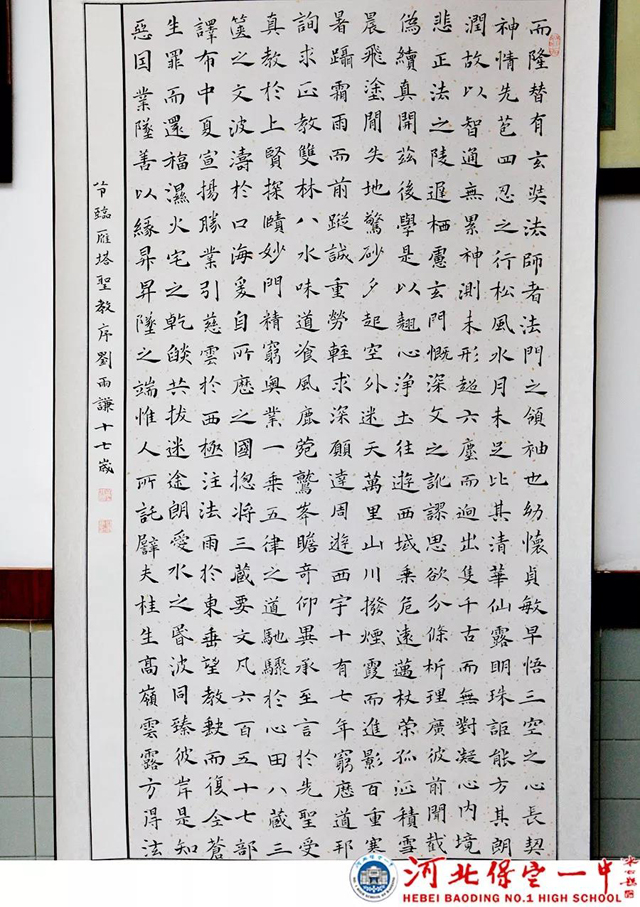 而隆替有玄奘法師者法門之領袖也幼懷貞敏早悟三空之心長契
神情先苞四忍之行松風水月未足比其清華仙露明珠詎能方其朗
潤故以智通無累神測未形超六塵而迥出隻千古而無對凝心內境
悲正法之陵遲栖慮玄門慨深文之訛謬思欲分條析理廣彼前聞截
偽續真開茲後學是以翹心淨土往遊西域乘危遠邁杖策孤征積雪
晨飛塗間失地驚砂夕起空外迷天萬里山川撥煙霞而進影百重寒
暑躡霜雨而前蹤誠重勞輕求深願達周遊西宇十有七年窮歷道邦
詢求正教雙林八水味道飡風鹿菀鷲峯瞻奇仰異承至言於先聖受
真教於上賢探賾妙門精窮奧業一乘五律之道馳驟於心田八藏三
篋之文波濤於口海爰自所歷之國揔將三藏要文凡六百五十七部
譯布中夏宣揚勝業引慈雲於西極注法雨於東垂聖教缺而復全蒼
生罪而還福濕火宅之乾燄共拔迷途朗愛水之昬波同臻彼岸是知
惡因業墜善以緣昇昇墜之端惟人所託譬夫桂生高嶺雲露方得法
節臨雁塔聖教序劉雨謙十七歲
河北保定一中
HEBEI BAODING NO.1 HIGH SCHOOL